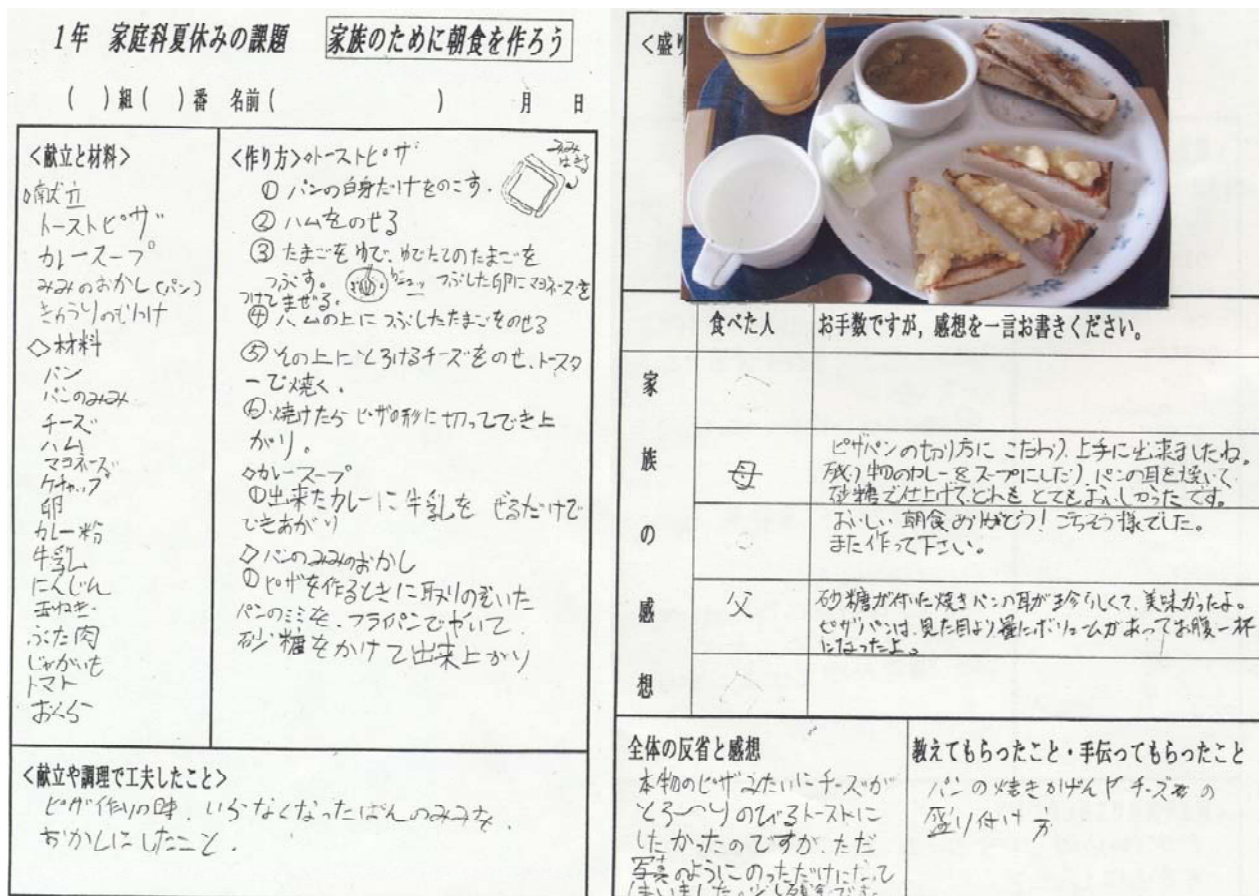 1年 家庭科夏休みの課題 家族のために朝食を作ろう
( )組( )番 名前( ) 月 日
<献立と材料>
◇献立
トーストピザ
カレースープ
みみのおかし(パン)
きゅうりの
◇材料
パン
パンのみみ
チーズ
ハム
マヨネーズ
ケチャップ
卵
カレー粉
牛乳
にんじん
玉ねぎ
ぶた肉
じゃがいも
トマト
おくら
<作り方>◇トーストピザ
みみ
はずす
① パンの白身だけをのこす。
② ハムをのせる
③ たまごをゆで、ゆでたてのたまごを
つぶす。 つぶした卵にマヨネーズを
つけてまぜる。
④ ハムの上につぶしたたまごをのせる
⑤ その上にとろけるチーズをのせ、トースタ
ーで焼く。
⑥ 焼けたら ピザの形に切ってでき上
がり。
◇カレースープ
①出来たカレーに牛乳を ぜるだけで
できあがり
◇パンのみみのおかし
①ピザを作るときに取りのぞいた
パンのミミを、フライパンでやいて、
砂糖をかけて出来上がり
<献立や調理で工夫したこと>
ピザ作りの時、いらなくなったぱんのみみを、
おかしにしたこと。
<盛り
食べた人 お手数ですが,感想を一言お書きください。
家族の感想
母
ピザパンの切り方にこだわり、上手に出来ましたね。
残り物のカレーをスープにしたり、パンの耳を焼いて
砂糖で仕上げて、どれもとてもおいしかったです。
おいしい朝食ありがとう!ごちそう様でした。
また作って下さい。
父
砂糖が付いた焼きパンの耳が珍らしくて、美味かったよ。
ピザパンは、見た目より量にボリュームがあってお腹一杯
になったよ。
全体の反省と感想
本物のピザみたいにチーズが
とろ〜りのびるトーストに
したかったのですが、ただ
写真のようにのっただけになって
しまいました。少し残念です。
教えてもらったこと・手伝ってもらったこと
パンの焼きかげんやチーズの
盛り付け方